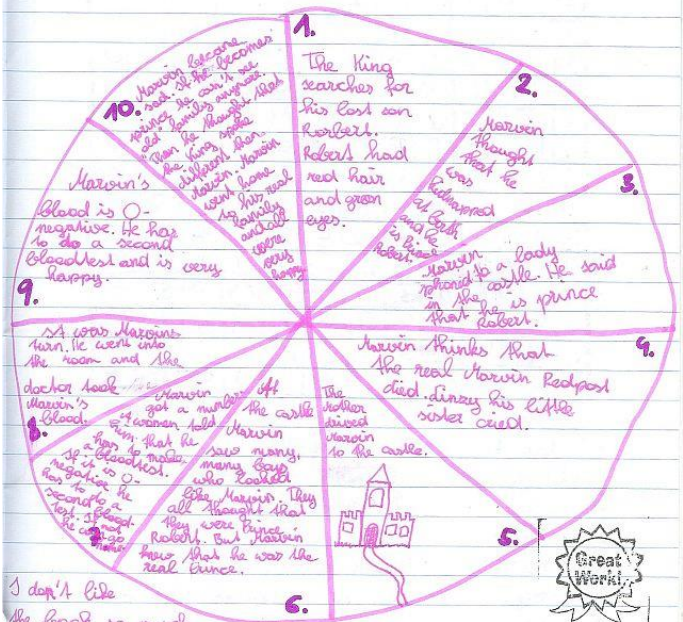 1.
The King
searches for
his lost son
Robert.
Robert had
red hair
and green
eyes.
2.
Marvin
thought
that he
was
kidnapped
at birth
and he
is Prince
Robert.
3.
Marvin
phoned to a lady
in the castle. He said
that he is prince
Robert.
4.
Marvin thinks that
the real Marvin Redpost
died. Linzy his little
sister cried.
5.
The
mother
drived
Marvin
to the castle.
6.
At
the castle
Marvin
saw many,
many boys
who looked
like Marvin. They
all thought that
they were Prince
Robert. But Marvin
knew that he was the
real Prince.
7.
Marvin
got a number.
A women told
him that he
has to make
a bloodtest.
If it is O-
negative he
has to do a
second blood-
test. If not
he can go
home.
8.
It was Marvins
turn. He went into
the room and the
doctor took
Marvin's
blood.
9.
Marvin's
blood is O-
negative. He has
to do a second
bloodtest and is very
happy.
10.
Marvin became
sad. If he becomes
prince he can't see
old family anymore.
Then he thought that
the King spoke
different then
Marvin. Marvin
went home
to his real
family
and all
were
very
happy.
Great
Work!
I don't like
the book so much